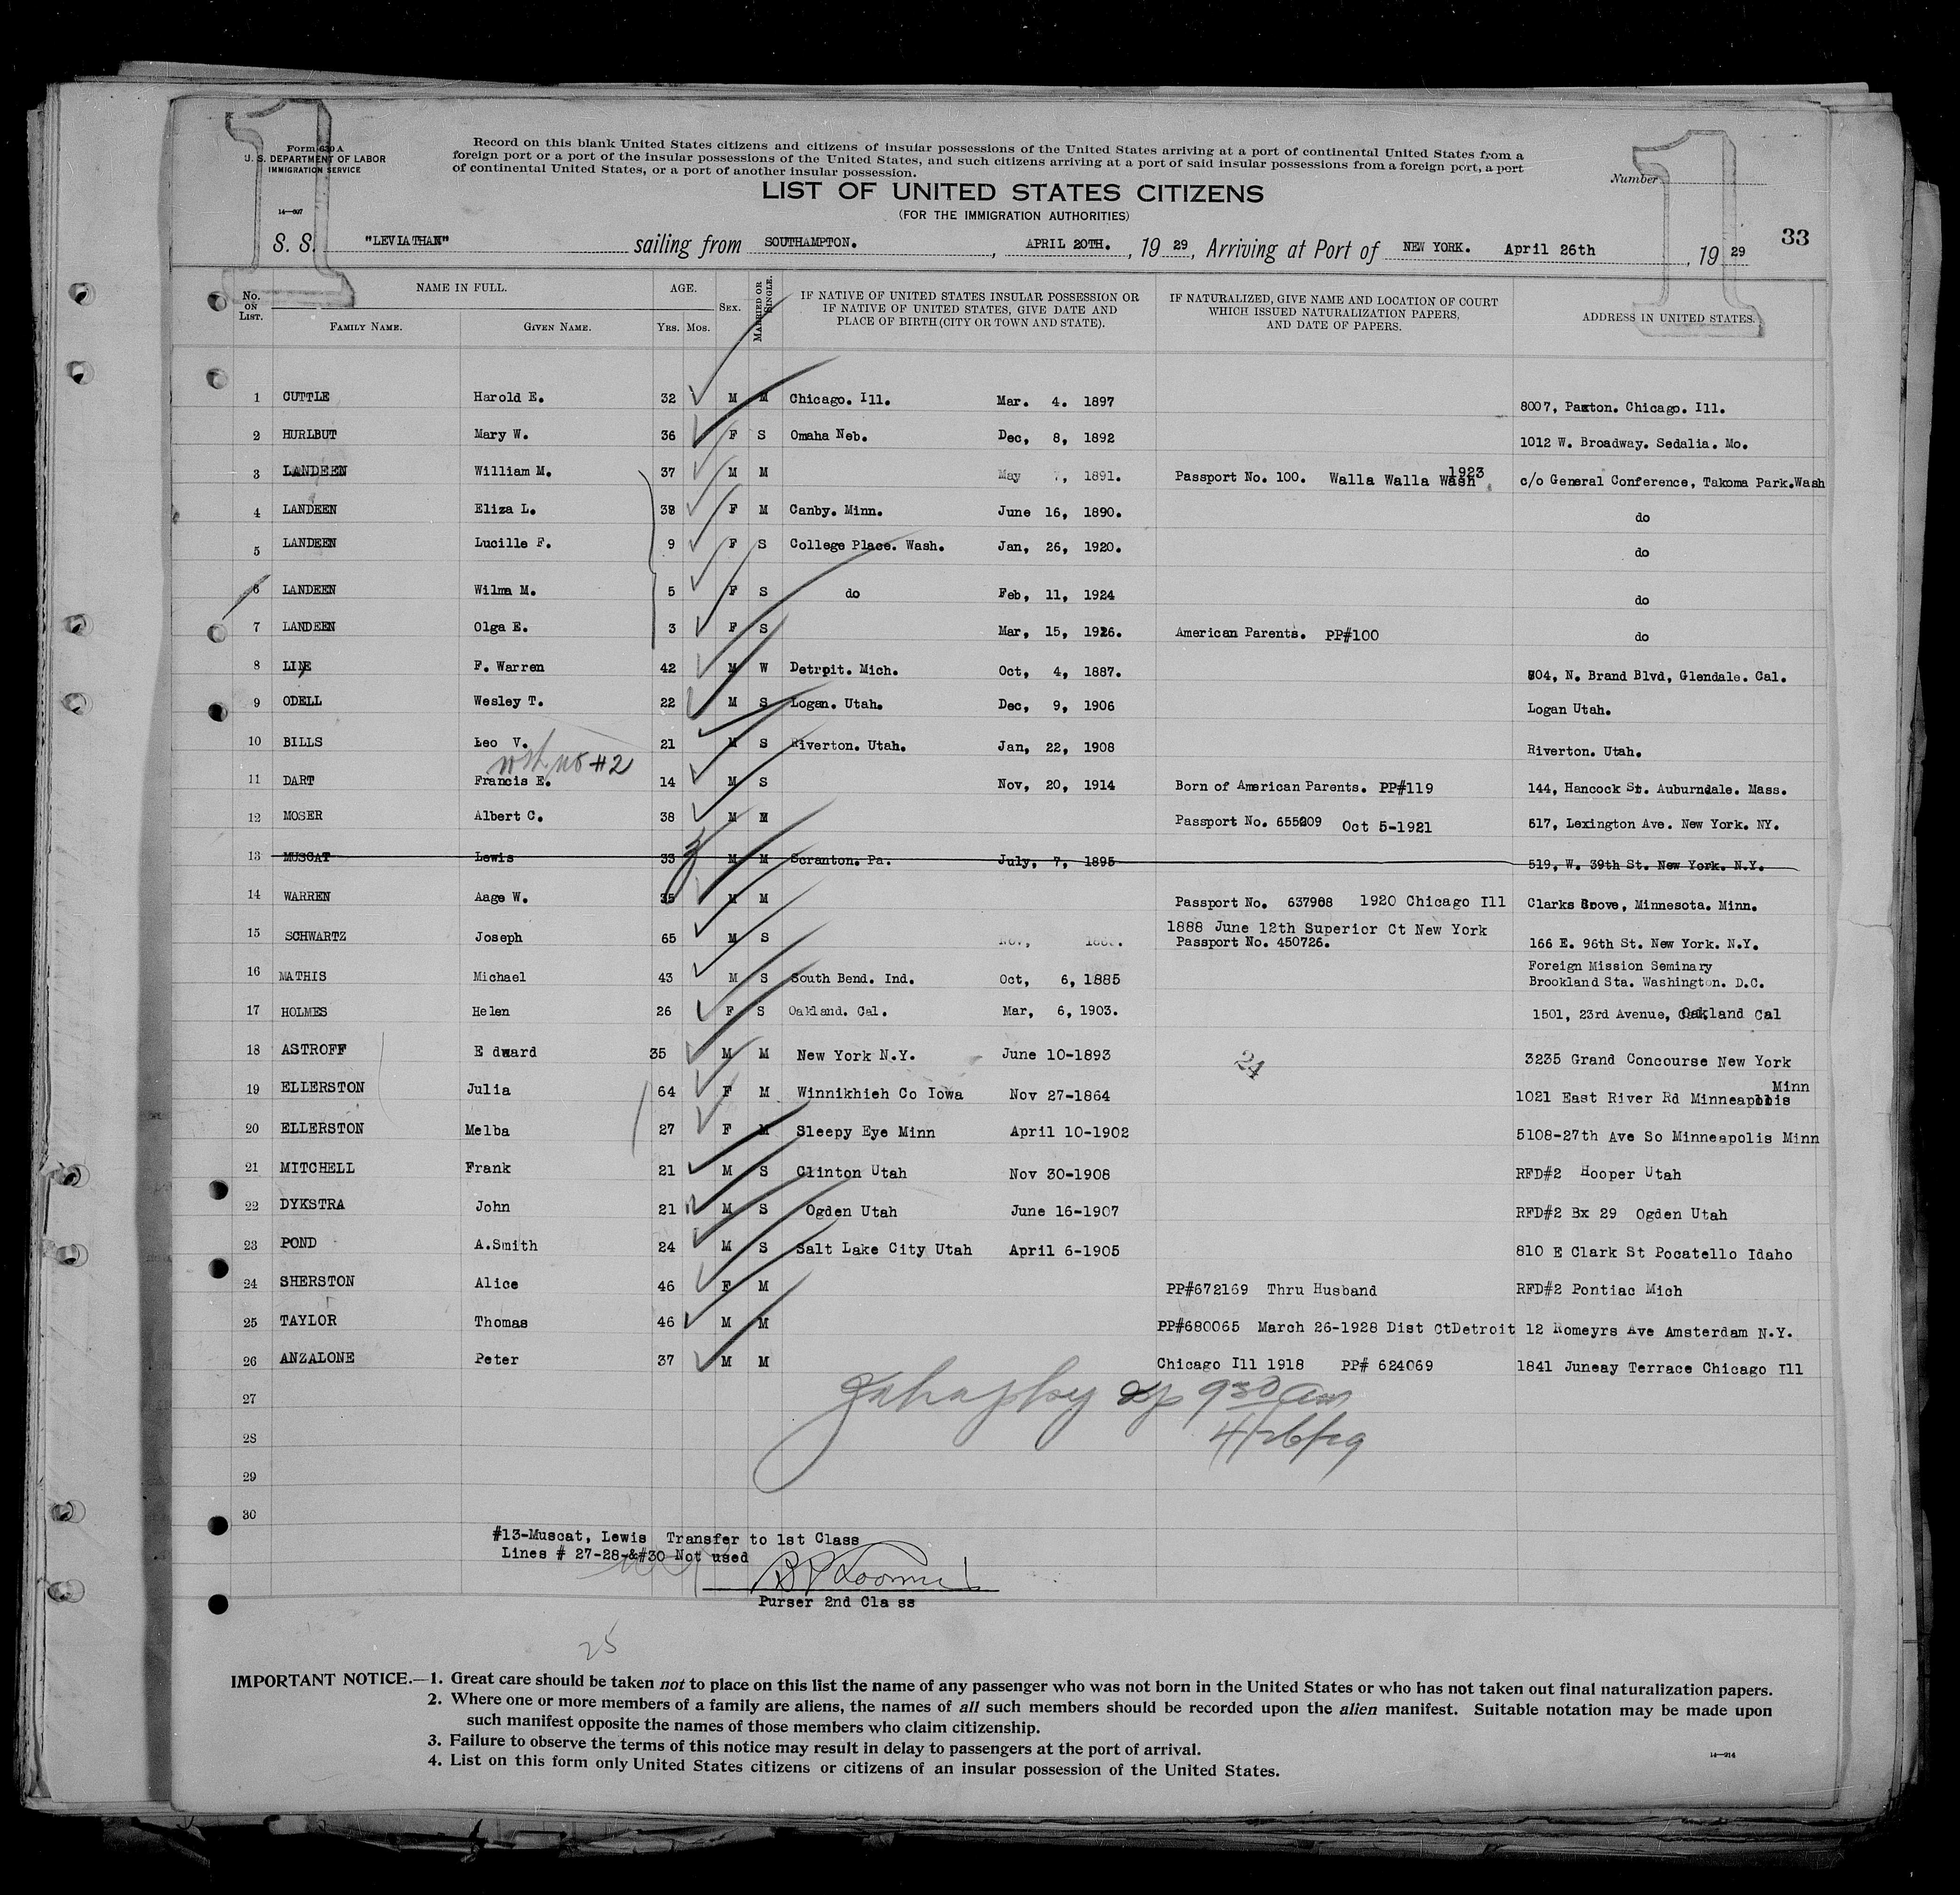 Form 630 A
U. S. DEPARTMENT OF LABOR
IMMIGRATION SERVICE
14—607
Record on this blank United States citizens and citizens of insular possessions of the United States arriving at a port of continental United States from a
foreign port or a port of the insular possessions of the United States, and such citizens arriving at a port of said insular possessions from a foreign port, a port
of continental United States, or a port of another insular possession.
Number
LIST OF UNITED STATES CITIZENS
(FOR THE IMMIGRATION AUTHORITIES)
S. S. "LEVIATHAN" sailing from SOUTHAMPTON. , APRIL 20TH. , 19 29, Arriving at Port of NEW YORK. April 26th , 19 29
33
No. ON LIST. NAME IN FULL. FAMILY NAME. GIVEN NAME. AGE. Yrs. Mos. SEX. MARRIED OR SINGLE. IF NATIVE OF UNITED STATES INSULAR POSSESSION OR IF NATIVE OF UNITED STATES, GIVE DATE AND PLACE OF BIRTH (CITY OR TOWN AND STATE). IF NATURALIZED, GIVE NAME AND LOCATION OF COURT WHICH ISSUED NATURALIZATION PAPERS, AND DATE OF PAPERS. ADDRESS IN UNITED STATES.
1 CUTTLE Harold E. 32 M M Chicago. Ill. Mar. 4. 1897 8007, Paxton. Chicago. Ill.
2 HURLBUT Mary W. 36 F S Omaha Neb. Dec, 8, 1892 1012 W. Broadway. Sedalia. Mo.
3 LANDEEN William M. 37 M M May 7, 1891. Passport No. 100. Walla Walla Wash 1923 c/o General Conference, Takoma Park.Wash
4 LANDEEN Eliza L. 38 F M Canby. Minn. June 16, 1890. do
5 LANDEEN Lucille F. 9 F S College Place. Wash. Jan, 26, 1920. do
6 LANDEEN Wilma M. 5 F S do Feb, 11, 1924 do
7 LANDEEN Olga E. 3 F S Mar, 15, 1926. American Parents. PP#100 do
8 F. Warren 42 M W Detroit. Mich. Oct, 4, 1887. 804, N. Brand Blvd, Glendale. Cal.
9 ODELL Wesley T. 22 M S Logan. Utah. Dec, 9, 1906 Logan Utah.
10 BILLS Leo V. 21 M S Riverton. Utah. Jan, 22, 1908 Riverton. Utah.
#2
11 DART Francis E. 14 M S Nov, 20, 1914 Born of American Parents. PP#119 144, Hancock St. Auburndale. Mass.
12 MOSER Albert C. 38 M M Passport No. 655209 Oct 5-1921 517, Lexington Ave. New York. NY.
13 MUSCAT Lewis 33 M M Scranton. Pa. July, 7, 1895 519, W. 39th St. New York. N.Y.
14 WARREN Aage W. 35 M M Passport No. 637968 1920 Chicago Ill Clarks Grove, Minnesota. Minn.
15 SCHWARTZ Joseph 65 M S Nov, 1888 June 12th Superior Ct New York
Passport No. 450726. 166 E. 96th St. New York. N.Y.
16 MATHIS Michael 43 M S South Bend. Ind. Oct, 6, 1885 Foreign Mission Seminary
Brookland Sta. Washington. D.C.
17 HOLMES Helen 26 F S Oakland. Cal. Mar, 6, 1903. 1501, 23rd Avenue, Oakland Cal
18 ASTROFF E dward 35 M M New York N.Y. June 10-1893 3235 Grand Concourse New York
24
19 ELLERSTON Julia 64 F M Winnikhieh Co Iowa Nov 27-1864 1021 East River Rd Minneapolis Minn
20 ELLERSTON Melba 27 F M Sleepy Eye Minn April 10-1902 5108-27th Ave So Minneapolis Minn
21 MITCHELL Frank 21 M S Clinton Utah Nov 30-1908 RFD#2 Hooper Utah
22 DYKSTRA John 21 M S Ogden Utah June 16-1907 RFD#2 Bx 29 Ogden Utah
23 POND A.Smith 24 M S Salt Lake City Utah April 6-1905 810 E Clark St Pocatello Idaho
24 SHERSTON Alice 46 F M PP#672169 Thru Husband RFD#2 Pontiac Mich
25 TAYLOR Thomas 46 M M PP#680065 March 26-1928 Dist CtDetroit 12 Romeyrs Ave Amsterdam N.Y.
26 ANZALONE Peter 37 M M Chicago Ill 1918 PP# 624069 1841 Juneay Terrace Chicago Ill
27 9 30 am
28 4/26/29
29
30
#13-Muscat, Lewis Transfer to 1st Class
Lines # 27-28-&#30 Not used
Purser 2nd Cla ss
25
IMPORTANT NOTICE.—1. Great care should be taken not to place on this list the name of any passenger who was not born in the United States or who has not taken out final naturalization papers.
2. Where one or more members of a family are aliens, the names of all such members should be recorded upon the alien manifest. Suitable notation may be made upon
such manifest opposite the names of those members who claim citizenship.
3. Failure to observe the terms of this notice may result in delay to passengers at the port of arrival.
4. List on this form only United States citizens or citizens of an insular possession of the United States.
14—214